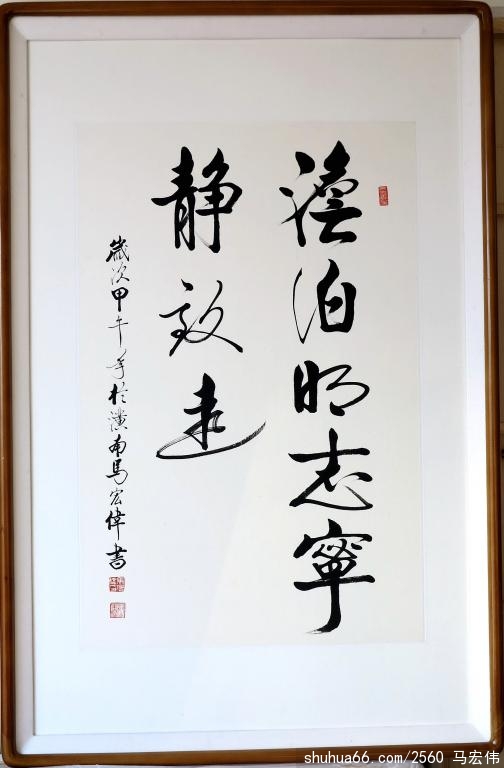 澹泊明志寧
静致遠
歲次甲午年於潢南馬宏偉書
shuhua66.com/2560 马宏伟